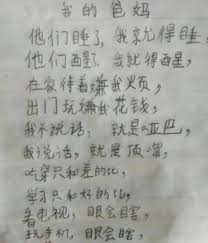 我的爸妈
他们睡了,我就得睡
他们醒了,我就得醒,
在家待着嫌我烦,
出门玩嫌我花钱,
我不说话,就是哑巴,
我说话,就是顶嘴,
吃穿只和差的比,
学习只和好的比,
看电视,眼会瞎,
玩手机,眼会瞎,